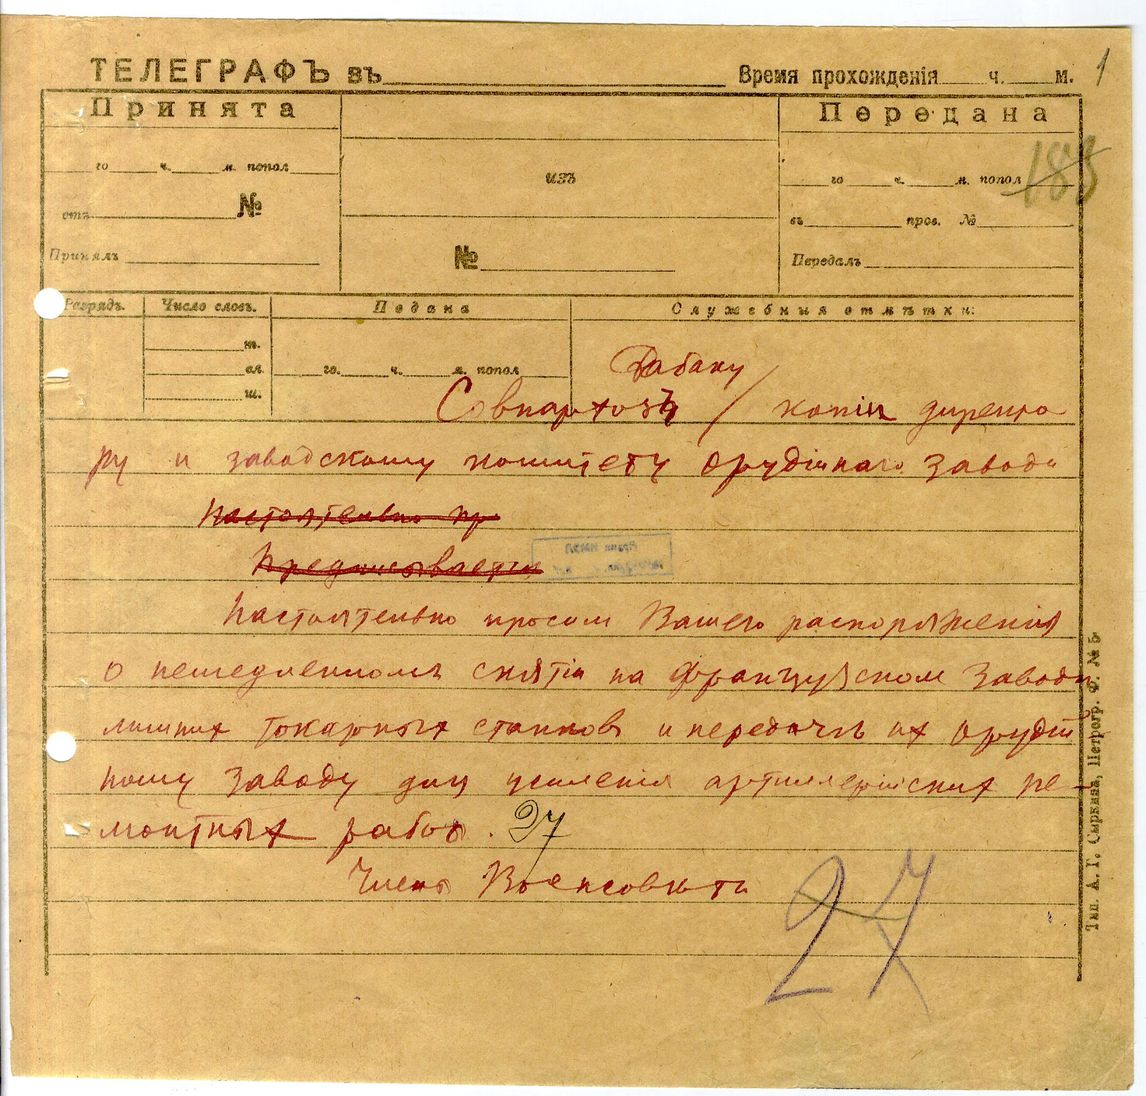 ТЕЛЕГРАФЪ въ Время прохожденія ч. м. 1
Принята Передана
го ч. м. попол изъ го ч. м. попол 188
отъ № въ пров. №
Принялъ № Передалъ
Разрядъ. Число словъ. Подана Служебныя отмѣтки:
т.
ал. го. ч. м. попол
ш.
Табаку
Совнархозъ / копіи директо
ру и заводскому комитету орудійнаго завода
Настоятельно пр
Предписывается
Настоятельно просим Вашего распоряженія
о немедленномъ снятіи на Французском заводе
лишних токарных станков и передачѣ их орудій
ному заводу для усиленія артиллерійских ре-
монтных работ. 27
Члены Военсовета
27
Тип. А. Г. Сыркина, Петрогр. Ф. № 5